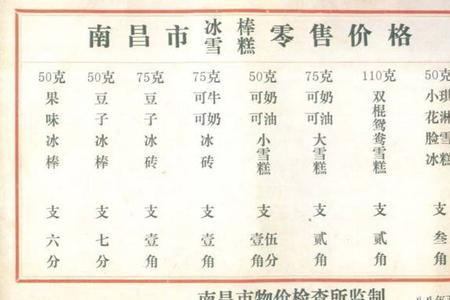 南昌市冰棒雪糕零售价格
50克 果味冰棒 支 六分
50克 豆子冰棒 支 七分
75克 豆子冰砖 支 壹角
75克 可可牛奶冰砖 支 壹角
50克 可可奶油小雪糕 支 壹角伍分
75克 可可奶油大雪糕 支 贰角
110克 双棍鸳鸯雪糕 支 贰角
50克 小花脸冰淇淋雪糕 支 叁角
南昌市物价检查所监制